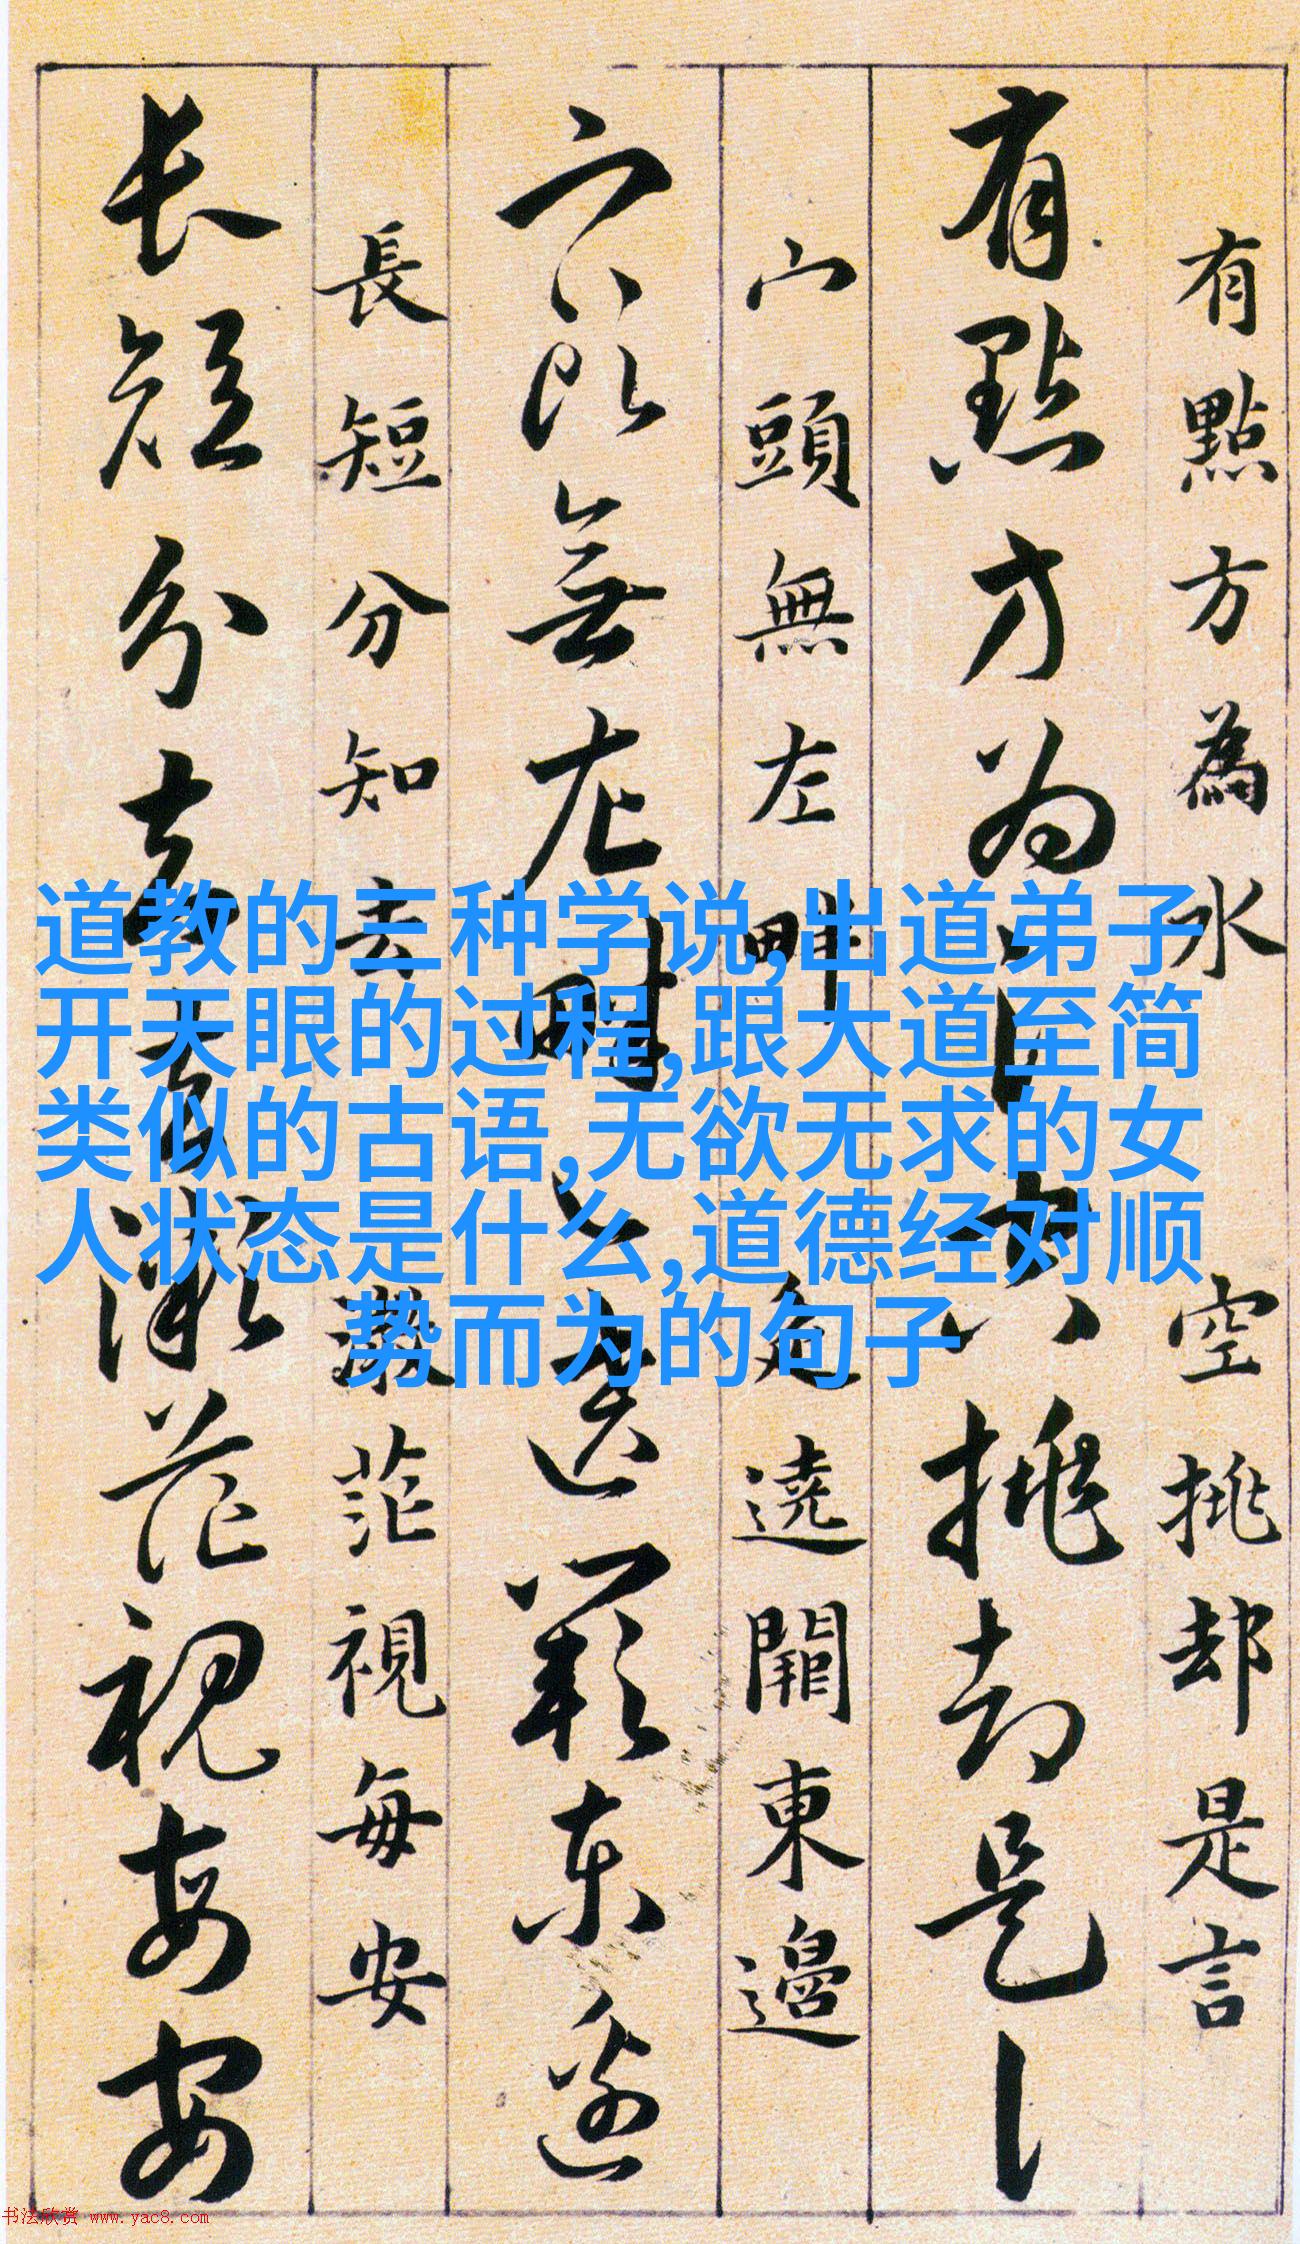 有點方為水
空挑却是言
有點方为水空挑却是言
宀頭無左畔
遶闗東邊
宀頭無左畔走遶闗东邊
長短分知去
茫視每安
长短分去去微茫视每安
道教的三种学说,出道弟子
开天眼的过程,跟大道至简
类似的古语,无欲无求的女
人状态是什么,道德经对顺
势而为的句子
书法欣赏 www.yac8.com